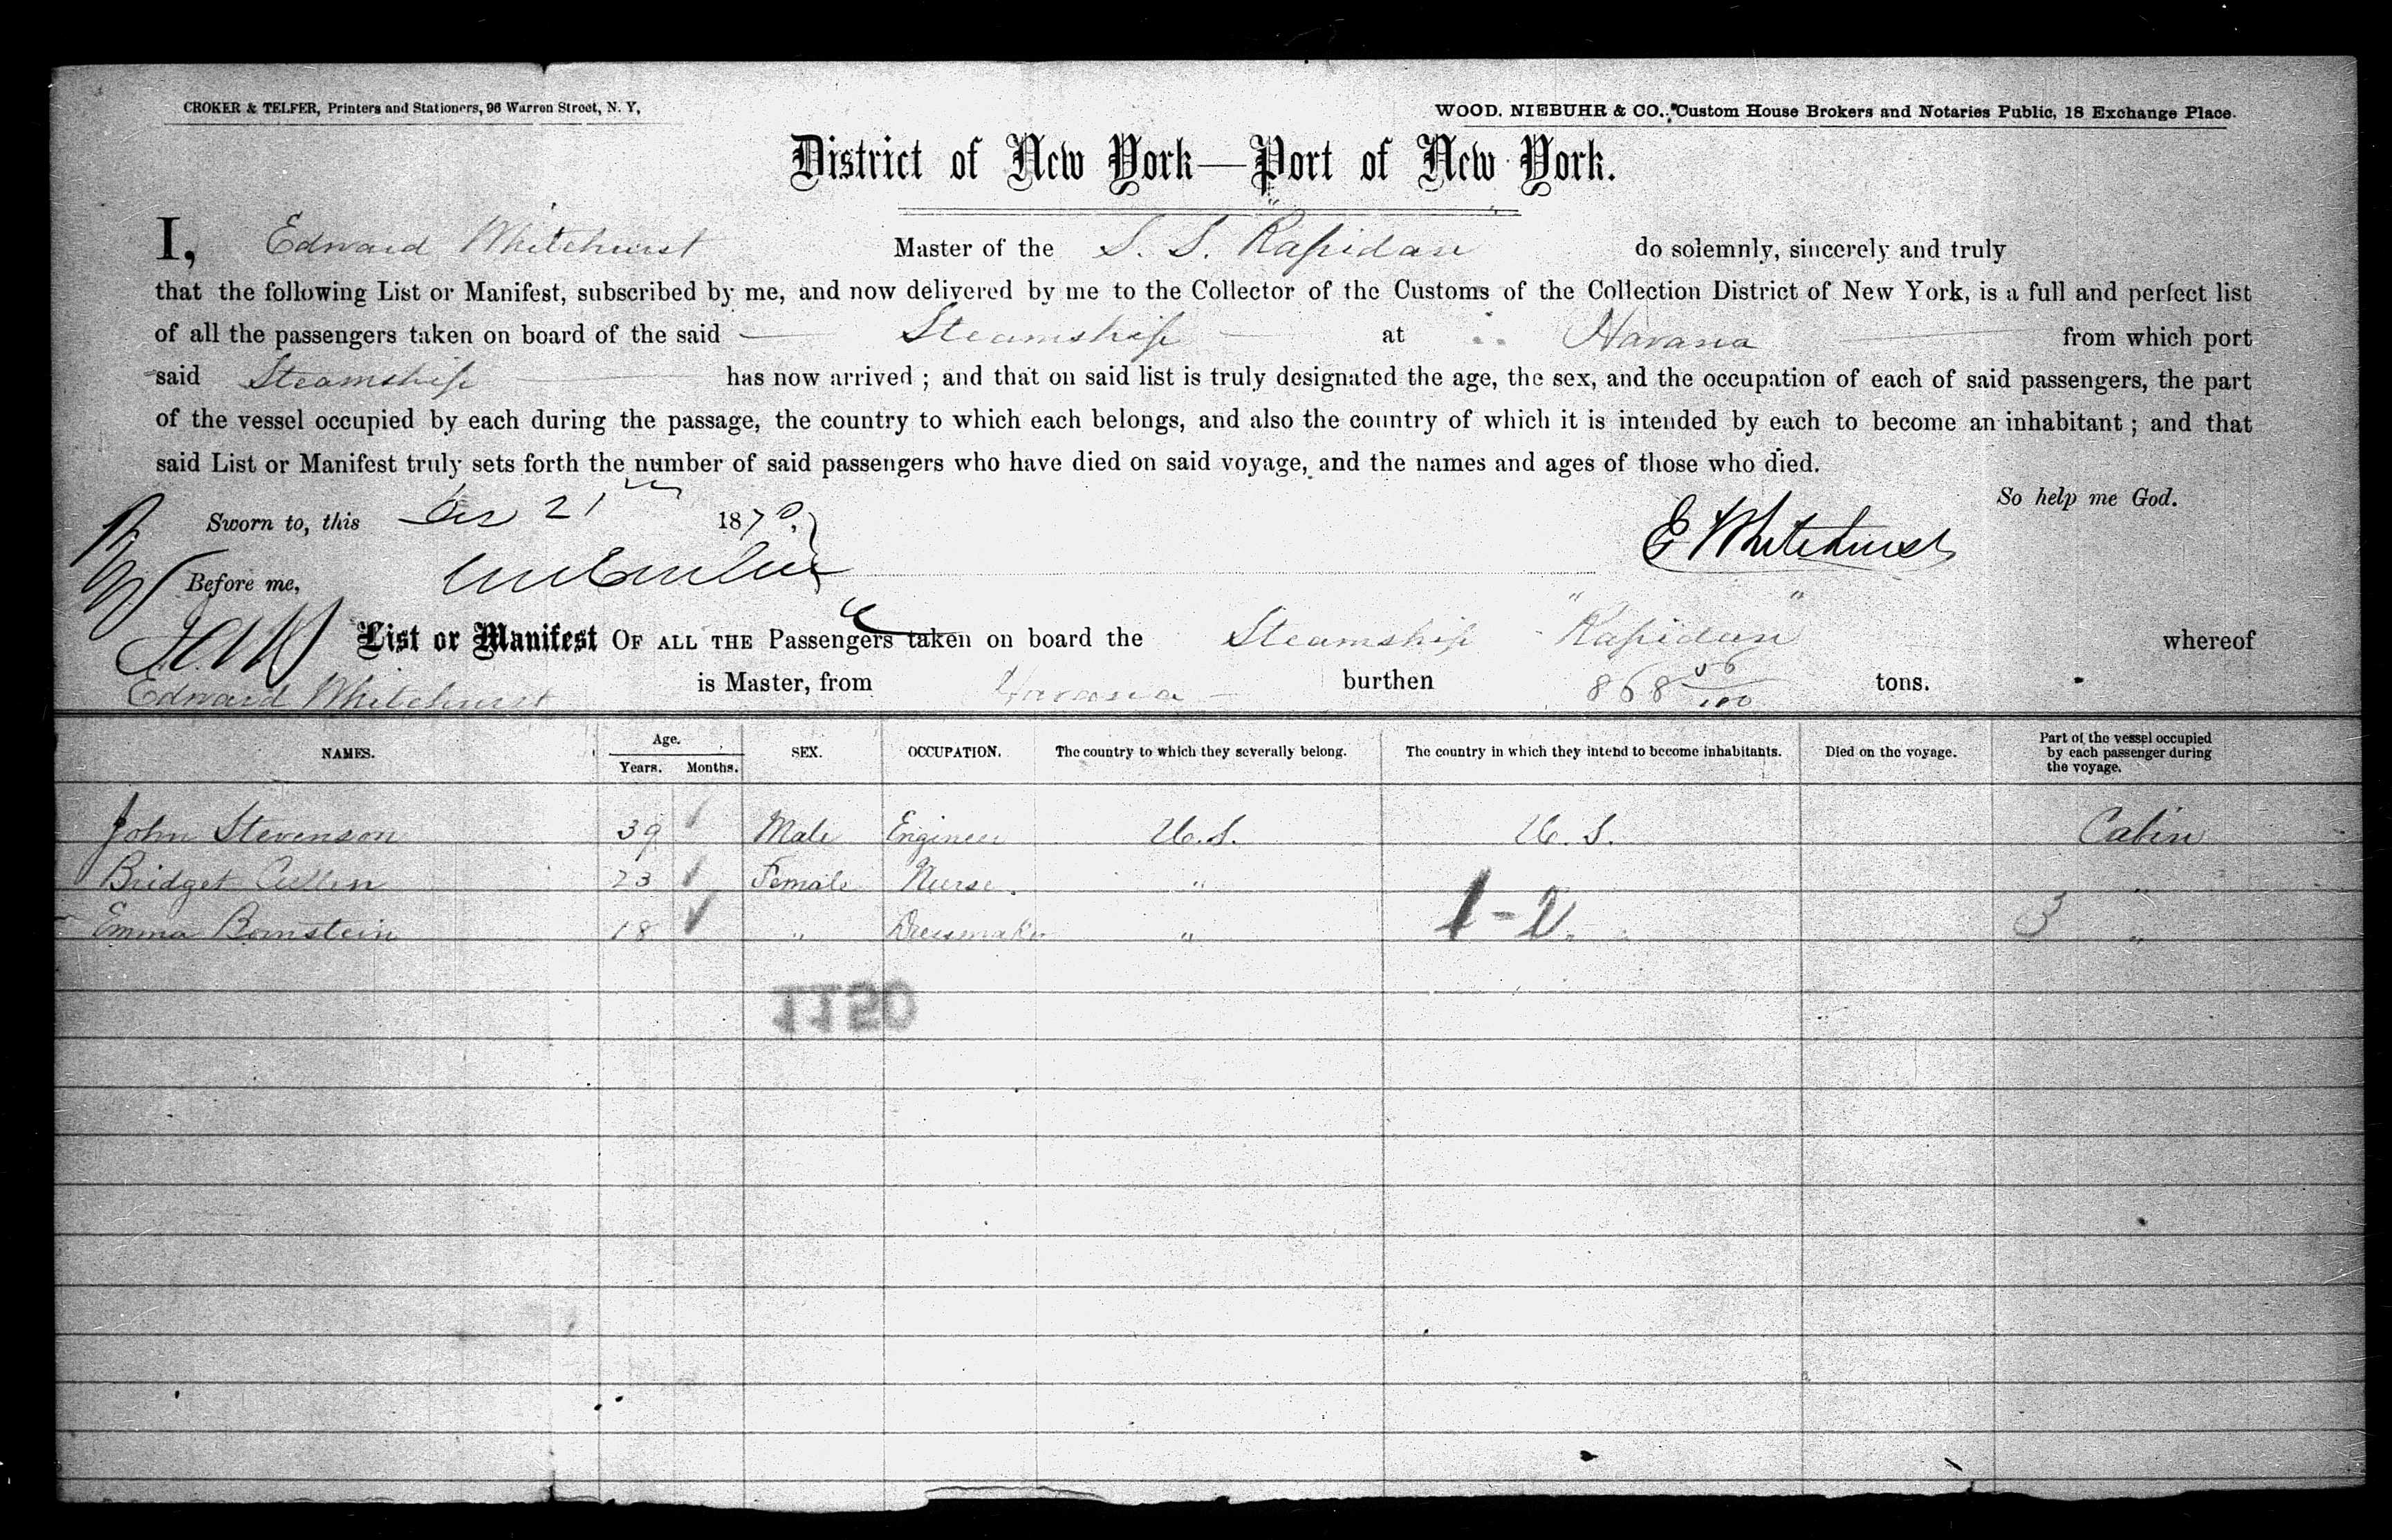 CROKER & TELFER, Printers and Stationers, 96 Warren Street, N. Y,
WOOD. NIEBUHR & CO., Custom House Brokers and Notaries Public, 18 Exchange Place.
District of New York—Port of New York.
I, Edward Whitehurst Master of the S. S. "Rapidan" do solemnly, sincerely and truly
that the following List or Manifest, subscribed by me, and now delivered by me to the Collector of the Customs of the Collection District of New York, is a full and perfect list
of all the passengers taken on board of the said Steamship at Havana from which port
said Steamship has now arrived ; and that on said list is truly designated the age, the sex, and the occupation of each of said passengers, the part
of the vessel occupied by each during the passage, the country to which each belongs, and also the country of which it is intended by each to become an inhabitant ; and that
said List or Manifest truly sets forth the number of said passengers who have died on said voyage, and the names and ages of those who died.
So help me God.
Sworn to, this 21 1870,
E Whitehurst
Before me,
List or Manifest OF ALL THE Passengers taken on board the Steamship "Rapidan" whereof
Edward Whitehurst is Master, from Havana burthen 868 56/100 tons.
NAMES. Age. Years. Months. SEX. OCCUPATION. The country to which they severally belong. The country in which they intend to become inhabitants. Died on the voyage. Part of the vessel occupied by each passenger during the voyage.
John Stevenson 39 Male Engineer U.S. U.S. Cabin
Bridget Cullen 23 Female Nurse. " "
Emma Bornstein 18 " Dressmaker " 1-2. 3 "
1150